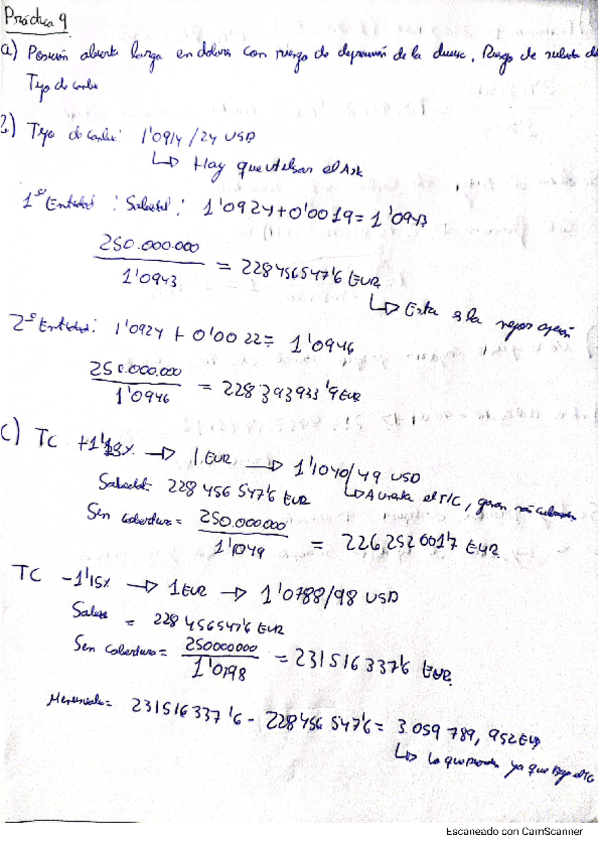 Práctica 9
a) Posición abierta larga en dolares con riesgo de depreciación de la divisa. Riesgo de subida del
Tipo de cambio
b) Tipo de cambio: 1'0914/24 USD
↳ Hay que utilizar el Ask
1ª Entidad: Sabadell: 1'0924+0'0019=1'0943
250.000.000 / 1'0943 = 228456547'6 EUR
↳ Esta es la mejor opción
2ª Entidad: 1'0924 + 0'0022= 1'0946
250.000.000 / 1'0946 = 228393933'9EUR
c) TC +1'15% → 1 EUR → 1'1040/49 USD
Sabadell= 228 456 547'6 EUR
↳ Aumenta el T/C, ganan
Sin cobertura = 250.000000 / 1'1049 = 226 252 001'7 EUR
TC -1'15% → 1EUR → 1'0788/98 USD
= 228 456547'6 EUR
Sin cobertura= 250000000 / 1'0798 = 231516337'6 EUR.
231516337'6 - 228456547'6= 3.059 789, 952EUR
↳ lo que pierde ya que baja el TC
Escaneado con CamScanner